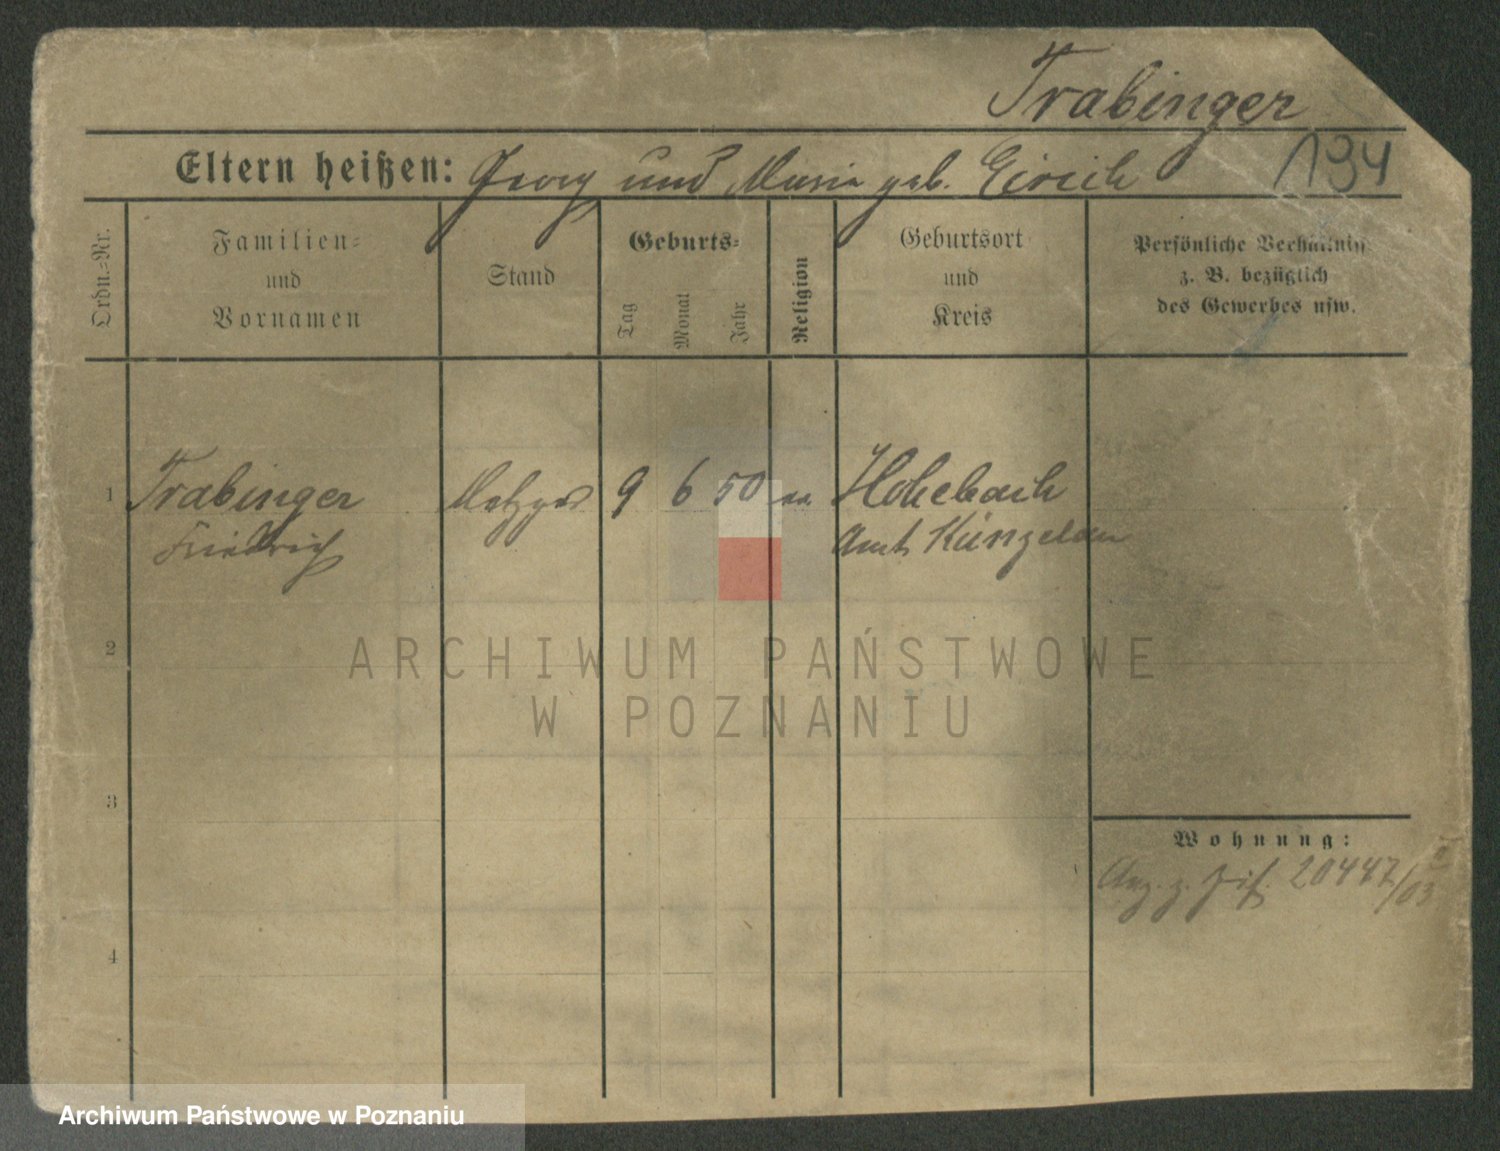 Trabinger
Eltern heißen: Georg und Maria geb. Eirich 194
Ordn.-Nr.
Familien-
und
Vornamen
Stand
Geburts-
Tag
Monat
Jahr
Religion
Geburtsort
und
Kreis
Persönliche Verhältnisse
z. B. bezüglich
des Gewerbes usw.
1 Trabinger Metzger 9 6 50 Hohebach
Friedrich Amt Künzelau
ARCHIWUM PAŃSTWOWE
W POZNANIU
2
3
4
Wohnung:
20447/03
Archiwum Państwowe w Poznaniu